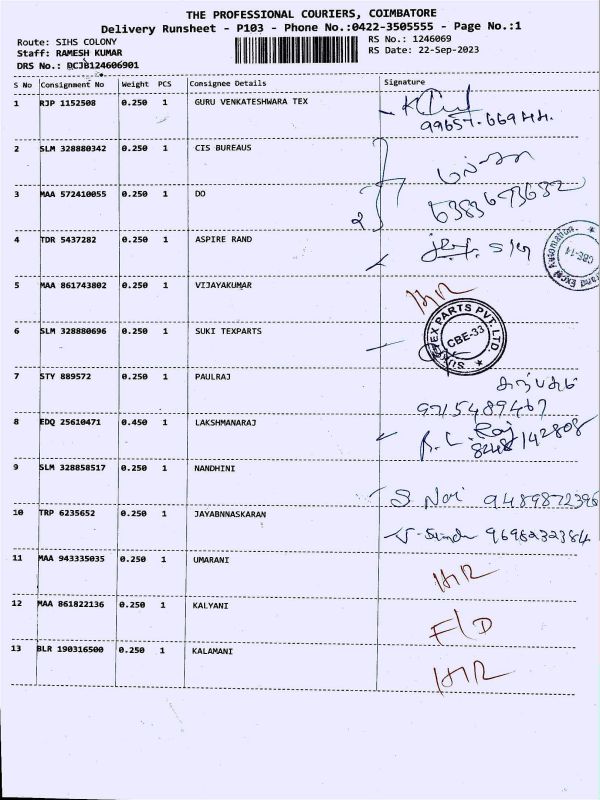 THE PROFESSIONAL COURIERS, COIMBATORE
Delivery Runsheet - P103 - Phone No.:0422-3505555 - Page No.:1
Route: SIHS COLONY
RS No.: 1246069
Staff: RAMESH KUMAR
RS Date: 22-Sep-2023
DRS No.: DCJB124606901
S No Consignment No Weight PCS Consignee Details Signature
1 RJP 1152508 0.250 1 GURU VENKATESHWARA TEX
2 SLM 328880342 0.250 1 CIS BUREAUS
3 MAA 572410055 0.250 1 DO
2
6383673632
4 TDR 5437282 0.250 1 ASPIRE RAND
CBE-14
5 MAA 861743802 0.250 1 VIJAYKUMAR
HR
6 SLM 328880696 0.250 1 SUKI TEXPARTS
CBE-33
7 STY 889572 0.250 1 PAULRAJ
9715489467
8 EDQ 25610471 0.450 1 LAKSHMANARAJ
R. L. Raj
8248142808
9 SLM 328858517 0.250 1 NANDHINI
9489872396
10 TRP 6235652 0.250 1 JAYABNNASKARAN
9698232384
11 MAA 943335035 0.250 1 UMARANI
HR
12 MAA 861822136 0.250 1 KALYANI
F/D
13 BLR 190316500 0.250 1 KALAMANI
HR